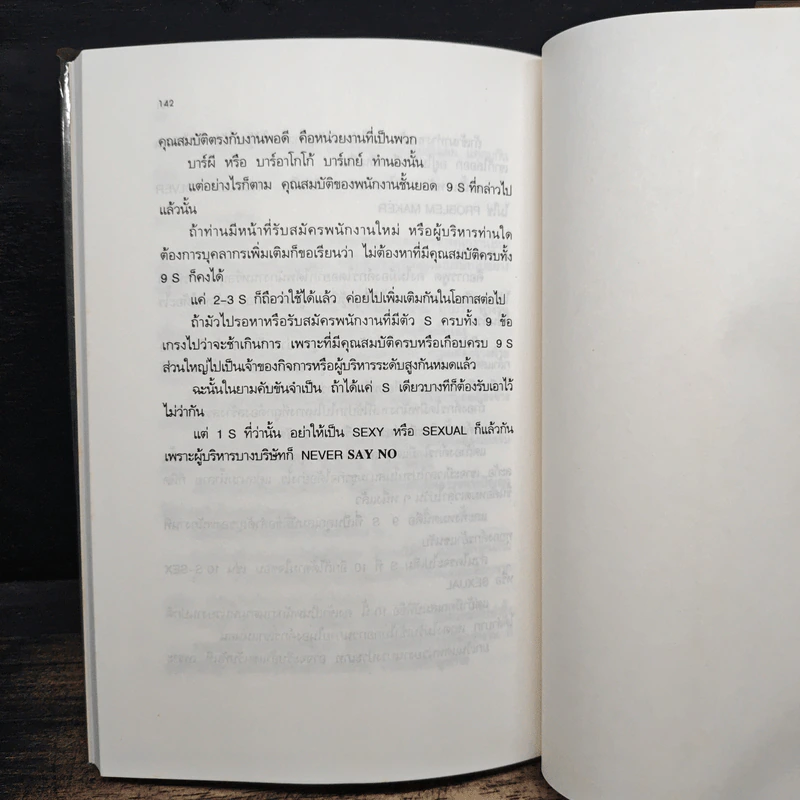 142
คุณสมบัติตรงกับงานพอดี คือหน่วยงานที่เป็นพวก
บาร์ผี หรือ บาร์อาโกโก้ บาร์เกย์ ทำนองนั้น
แต่อย่างไรก็ตาม คุณสมบัติของพนักงานชั้นยอด 9 S ที่กล่าวไป
แล้วนั้น
ถ้าท่านมีหน้าที่รับสมัครพนักงานใหม่ หรือผู้บริหารท่านใด
ต้องการบุคลากรเพิ่มเติมก็ขอเรียนว่า ไม่ต้องหาที่มีคุณสมบัติครบทั้ง
9 S ก็คงได้
แค่ 2-3 S ก็ถือว่าใช้ได้แล้ว ค่อยไปเพิ่มเติมกันในโอกาสต่อไป
ถ้ามัวไปรอหาหรือรับสมัครพนักงานที่มีตัว S ครบทั้ง 9 ข้อ
เกรงไปว่าจะช้าเกินการ เพราะที่มีคุณสมบัติครบหรือเกือบครบ 9 S
ส่วนใหญ่ไปเป็นเจ้าของกิจการหรือผู้บริหารระดับสูงกันหมดแล้ว
ฉะนั้นในยามคับขันจำเป็น ถ้าได้แค่ S เดียวบางทีก็ต้องรับเอาไว้
ไม่ว่ากัน
แต่ 1 S ที่ว่านั้น อย่าให้เป็น SEXY หรือ SEXUAL ก็แล้วกัน
เพราะผู้บริหารบางบริษัทก็ NEVER SAY NO